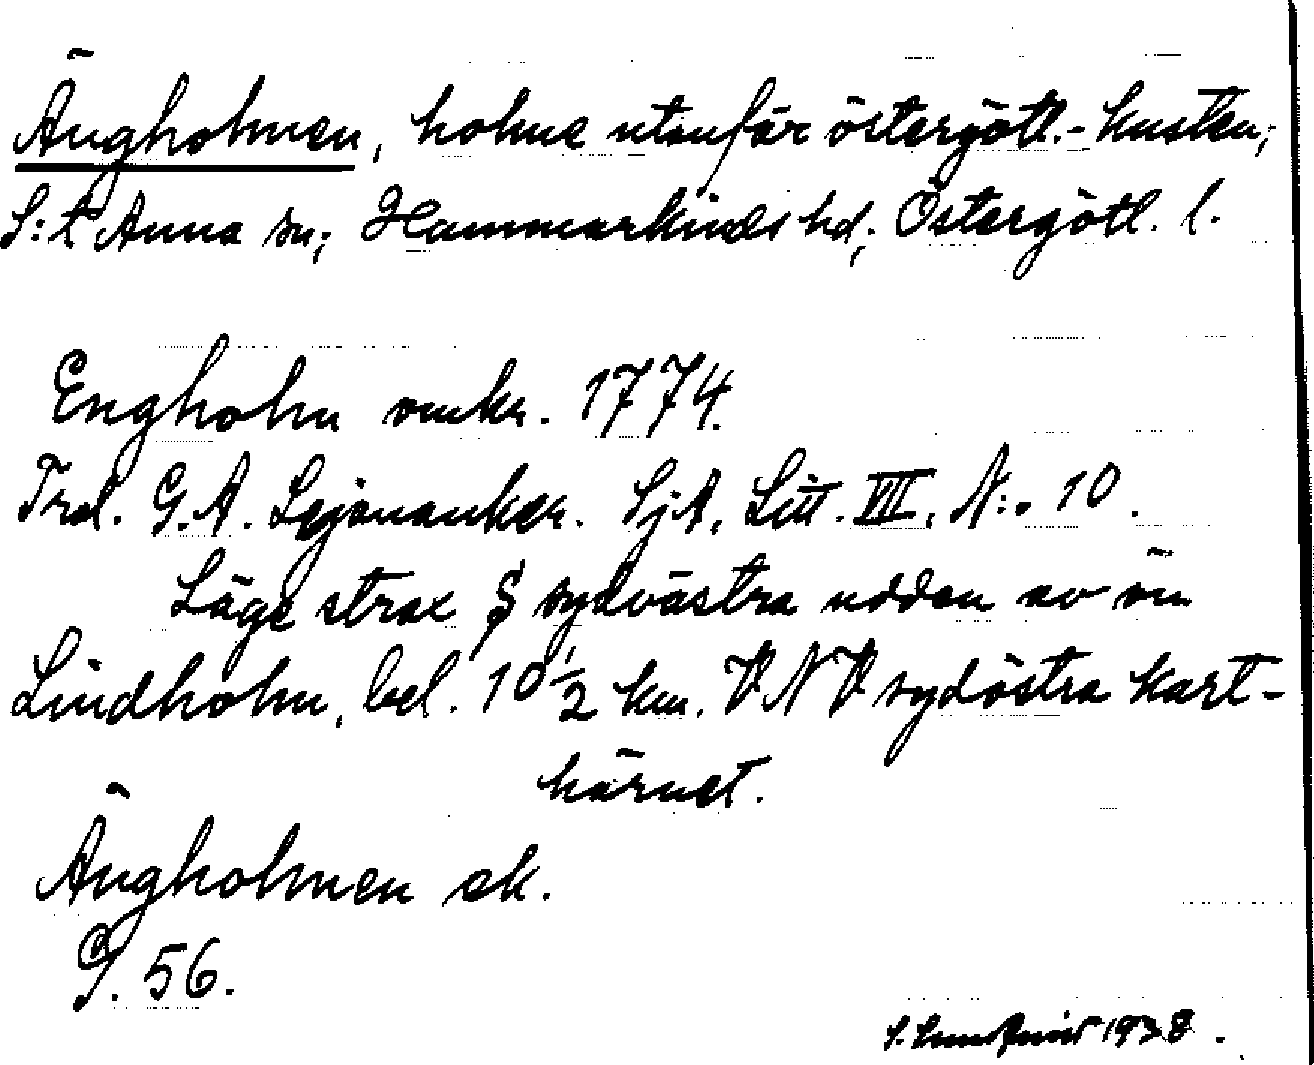 Ängholmen, holme utanför östergötl.-kusten;
S:t Anna sn; Hammarkinds hd; Östergötl. l.
Engholm omkr. 1774.
Frel. G. A. Lejonanker. SjA, Litt. VIII, N:o 10.
Läge strax S sydvästra udden av ön
Lindholm, bel. 10 1/2 km. VNV sydöstra kart-
hörnet.
Ängholmen ek.
G. 56.
1938.